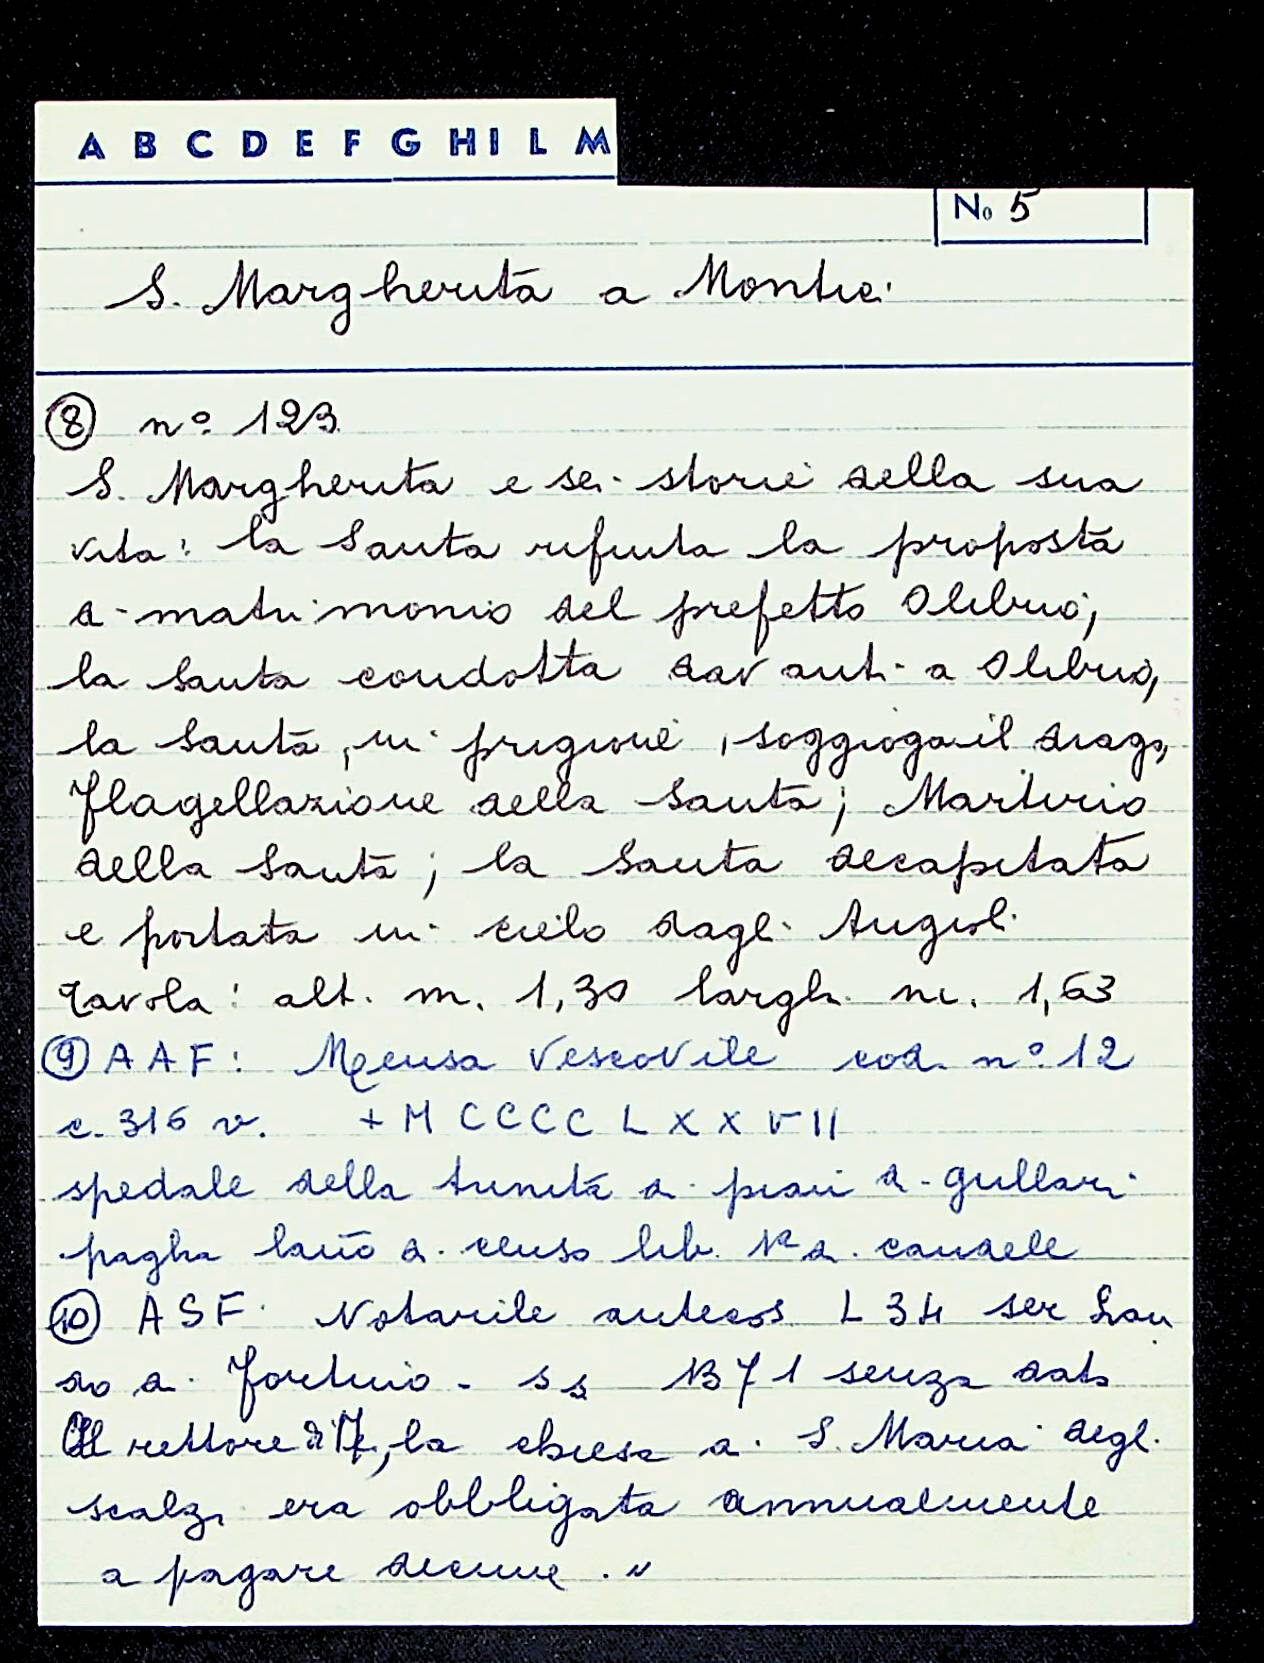 A B C D E F G H I L M
No 5
S. Margherita a Montici
8 nº 123
S. Margherita e sei storie della sua
vita: la Santa rifiuta la proposta
di matrimonio del prefetto Olibrio;
la Santa condotta davanti a Olibrio,
la Santa, in prigione, soggioga il drago,
Flagellazione della Santa; Martirio
della Santa; la Santa decapitata
e portata in cielo dagli Angioli
Tavola: alt. m. 1,30 largh. m. 1,63
9 AAF: Mensa Vescovile cod. nº 12
c. 316 v. + M CCCC L X X V II
spedale della trinità di pian di gullari
pagha lano di censo lib. di candele
10 ASF. Notarile antecos L 34 ser Lan
do di Fortino - ss 1371 senza data
Il rettore di la chiesa di S. Maria degli
scalzi era obbligata annualmente
a pagare decime. "